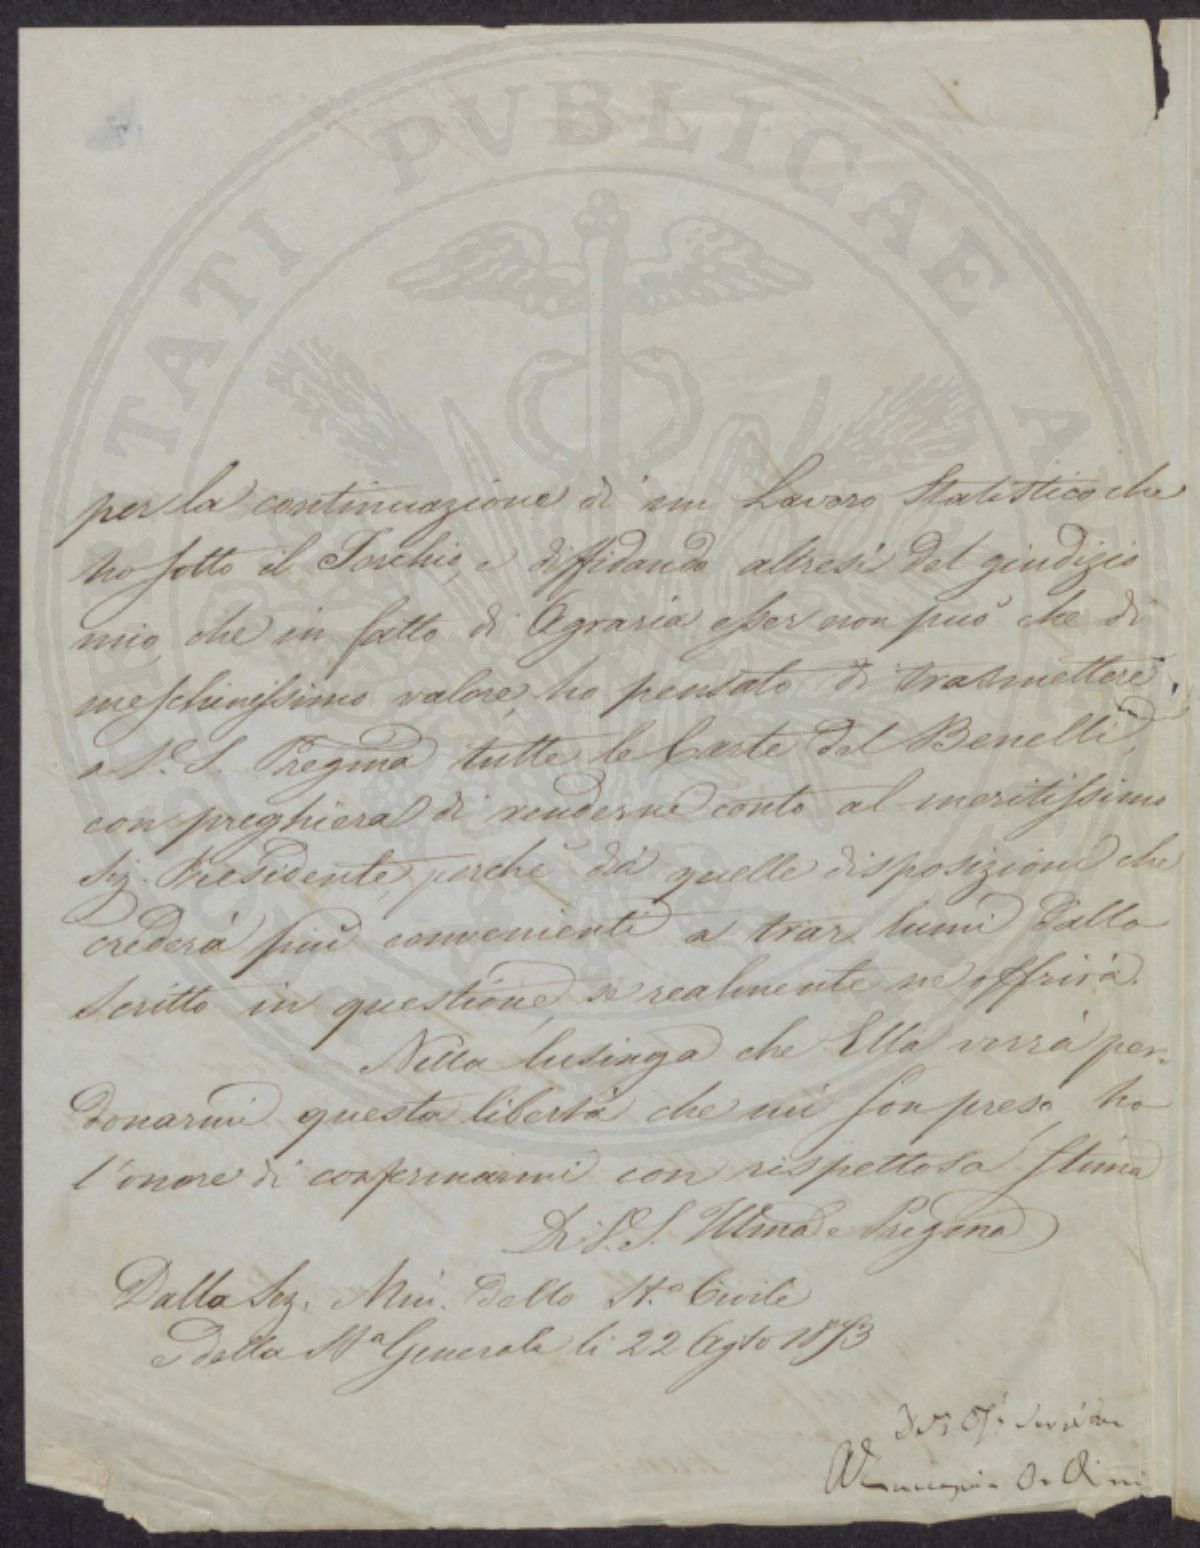 per la continuazione di un Lavoro Statistico che
ho sotto il Torchio, e diffidando altresì del giudizio
mio, che in fatto di Agraria esser non può che di
meschinissimo valore, ho pensato di trasmettere
a V. S. Pregma tutte le Carte del Benelli,
con preghiera di renderne conto al meritissimo
Sig. Presidente, perchè dia quelle disposizioni che
crederà più convenienti a trar lumi dallo
scritto in questione, se realmente ne offrirà.
Nella lusinga che Ella vorrà per-
donarmi questa libertà che mi son preso, ho
l'onore di confermarmi con rispettosa stima
Di V. S. Illma e Pregma
Dalla Sez. Min. dello St.º Civile
e della Sta Generale li 22 Agto
PUBLICAE